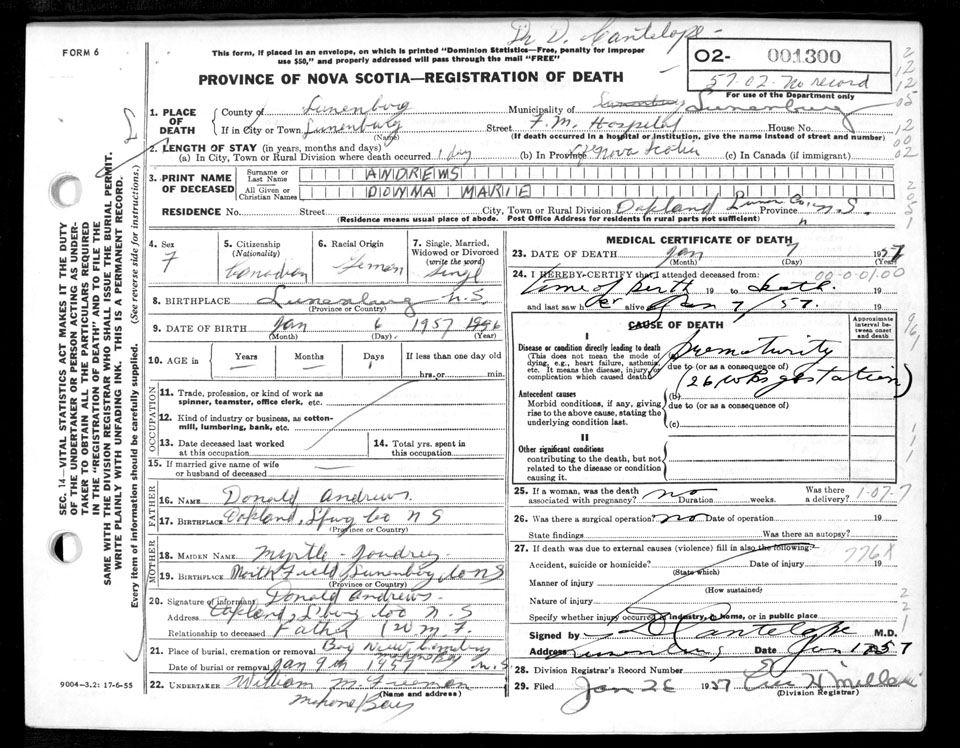 Dr D. Cantelope -
FORM 6
This form, if placed in an envelope, on which is printed "Dominion Statistics—Free, penalty for improper
use $50," and properly addressed will pass through the mail "FREE"
O2- 001300
57-02-No record
For use of the Department only
PROVINCE OF NOVA SCOTIA—REGISTRATION OF DEATH
1. PLACE OF DEATH
County of Lunenburg Municipality of Lunenburg
If in City or Town Lunenburg Street F. M. Hospital House No.
(Name) (If death occurred in a hospital or institution, give the name instead of street and number)
2. LENGTH OF STAY (in years, months and days)
(a) In City, Town or Rural Division where death occurred 1 day (b) In Province Nova Scotia (c) In Canada (if immigrant)
3. PRINT NAME OF DECEASED
Surname or Last Name ANDREWS
All Given or Christian Names DONNA MARIE
RESIDENCE No. Street City, Town or Rural Division Oakland Lunen Co. Province N.S.
(Residence means usual place of abode. Post Office Address for residents in rural parts not sufficient)
4. Sex F
5. Citizenship (Nationality) Canadian
6. Racial Origin German
7. Single, Married, Widowed or Divorced (write the word) Singl
8. BIRTHPLACE Lunenburg N.S.
(Province or Country)
9. DATE OF BIRTH Jan 6 1957
(Month) (Day) (Year)
10. AGE in Years Months Days 1 If less than one day old
hrs. or min.
OCCUPATION
11. Trade, profession, or kind of work as spinner, teamster, office clerk, etc.
12. Kind of industry or business, as cotton-mill, lumbering, bank, etc.
13. Date deceased last worked at this occupation
14. Total yrs. spent in this occupation
15. If married give name of wife or husband of deceased
FATHER
16. NAME Donald Andrews
17. BIRTHPLACE Oakland, Lburg Co N S
(Province or Country)
MOTHER
18. MAIDEN NAME Myrtle Joudrey
19. BIRTHPLACE North Field Lunenburg Co N S
(Province or Country)
20. Signature of informant Donald Andrews
Address Oakland, Lburg Co N. S
Relationship to deceased Father
21. Place of burial, cremation or removal Bay View Cemetery
Mahone Bay
Date of burial or removal Jan 9th 1957 N.S
22. UNDERTAKER William M. Freeman
(Name and address)
Mahone Bay
9004-3.2: 17-6-55
MEDICAL CERTIFICATE OF DEATH
23. DATE OF DEATH Jan 7 1957
(Month) (Day) (Year)
24. I HEREBY CERTIFY that I attended deceased from: 00-0-01.00
time of birth 19 to death 19
and last saw her alive Jan 7/57. 19
CAUSE OF DEATH
Approximate interval between onset and death
I
Disease or condition directly leading to death
(This does not mean the mode of dying, e.g., heart failure, asthenia, etc. It means the disease, injury or complication which caused death)
Prematurity
due to (or as a consequence of)
(26 wks gestation)
Antecedent causes
Morbid conditions, if any, giving rise to the above cause, stating the underlying condition last.
(b)
due to (or as a consequence of)
(c)
II
Other significant conditions
contributing to the death, but not related to the disease or condition causing it.
25. If a woman, was the death associated with pregnancy? no Duration weeks. Was there a delivery?
26. Was there a surgical operation? no Date of operation 19
State findings Was there an autopsy?
27. If death was due to external causes (violence) fill in also the following:
776X
Accident, suicide or homicide? Date of injury 19
(State which)
Manner of injury
(How sustained)
Nature of injury
Specify whether injury occurred in industry, at home, or in public place
Signed by D Cantelope M.D.
Address Lunenburg Date Jan
28. Division Registrar's Record Number
29. Filed Jan 26 1957
(Division Registrar)
SEC. 14—VITAL STATISTICS ACT MAKES IT THE DUTY
OF THE UNDERTAKER OR PERSON ACTING AS UNDER-
TAKER TO OBTAIN ALL THE PARTICULARS REQUIRED
IN THE "REGISTRATION OF DEATH" AND TO FILE THE
SAME WITH THE DIVISION REGISTRAR WHO SHALL ISSUE THE BURIAL PERMIT.
WRITE PLAINLY WITH UNFADING INK. THIS IS A PERMANENT RECORD.
Every item of information should be carefully supplied. (See reverse side for instructions.)